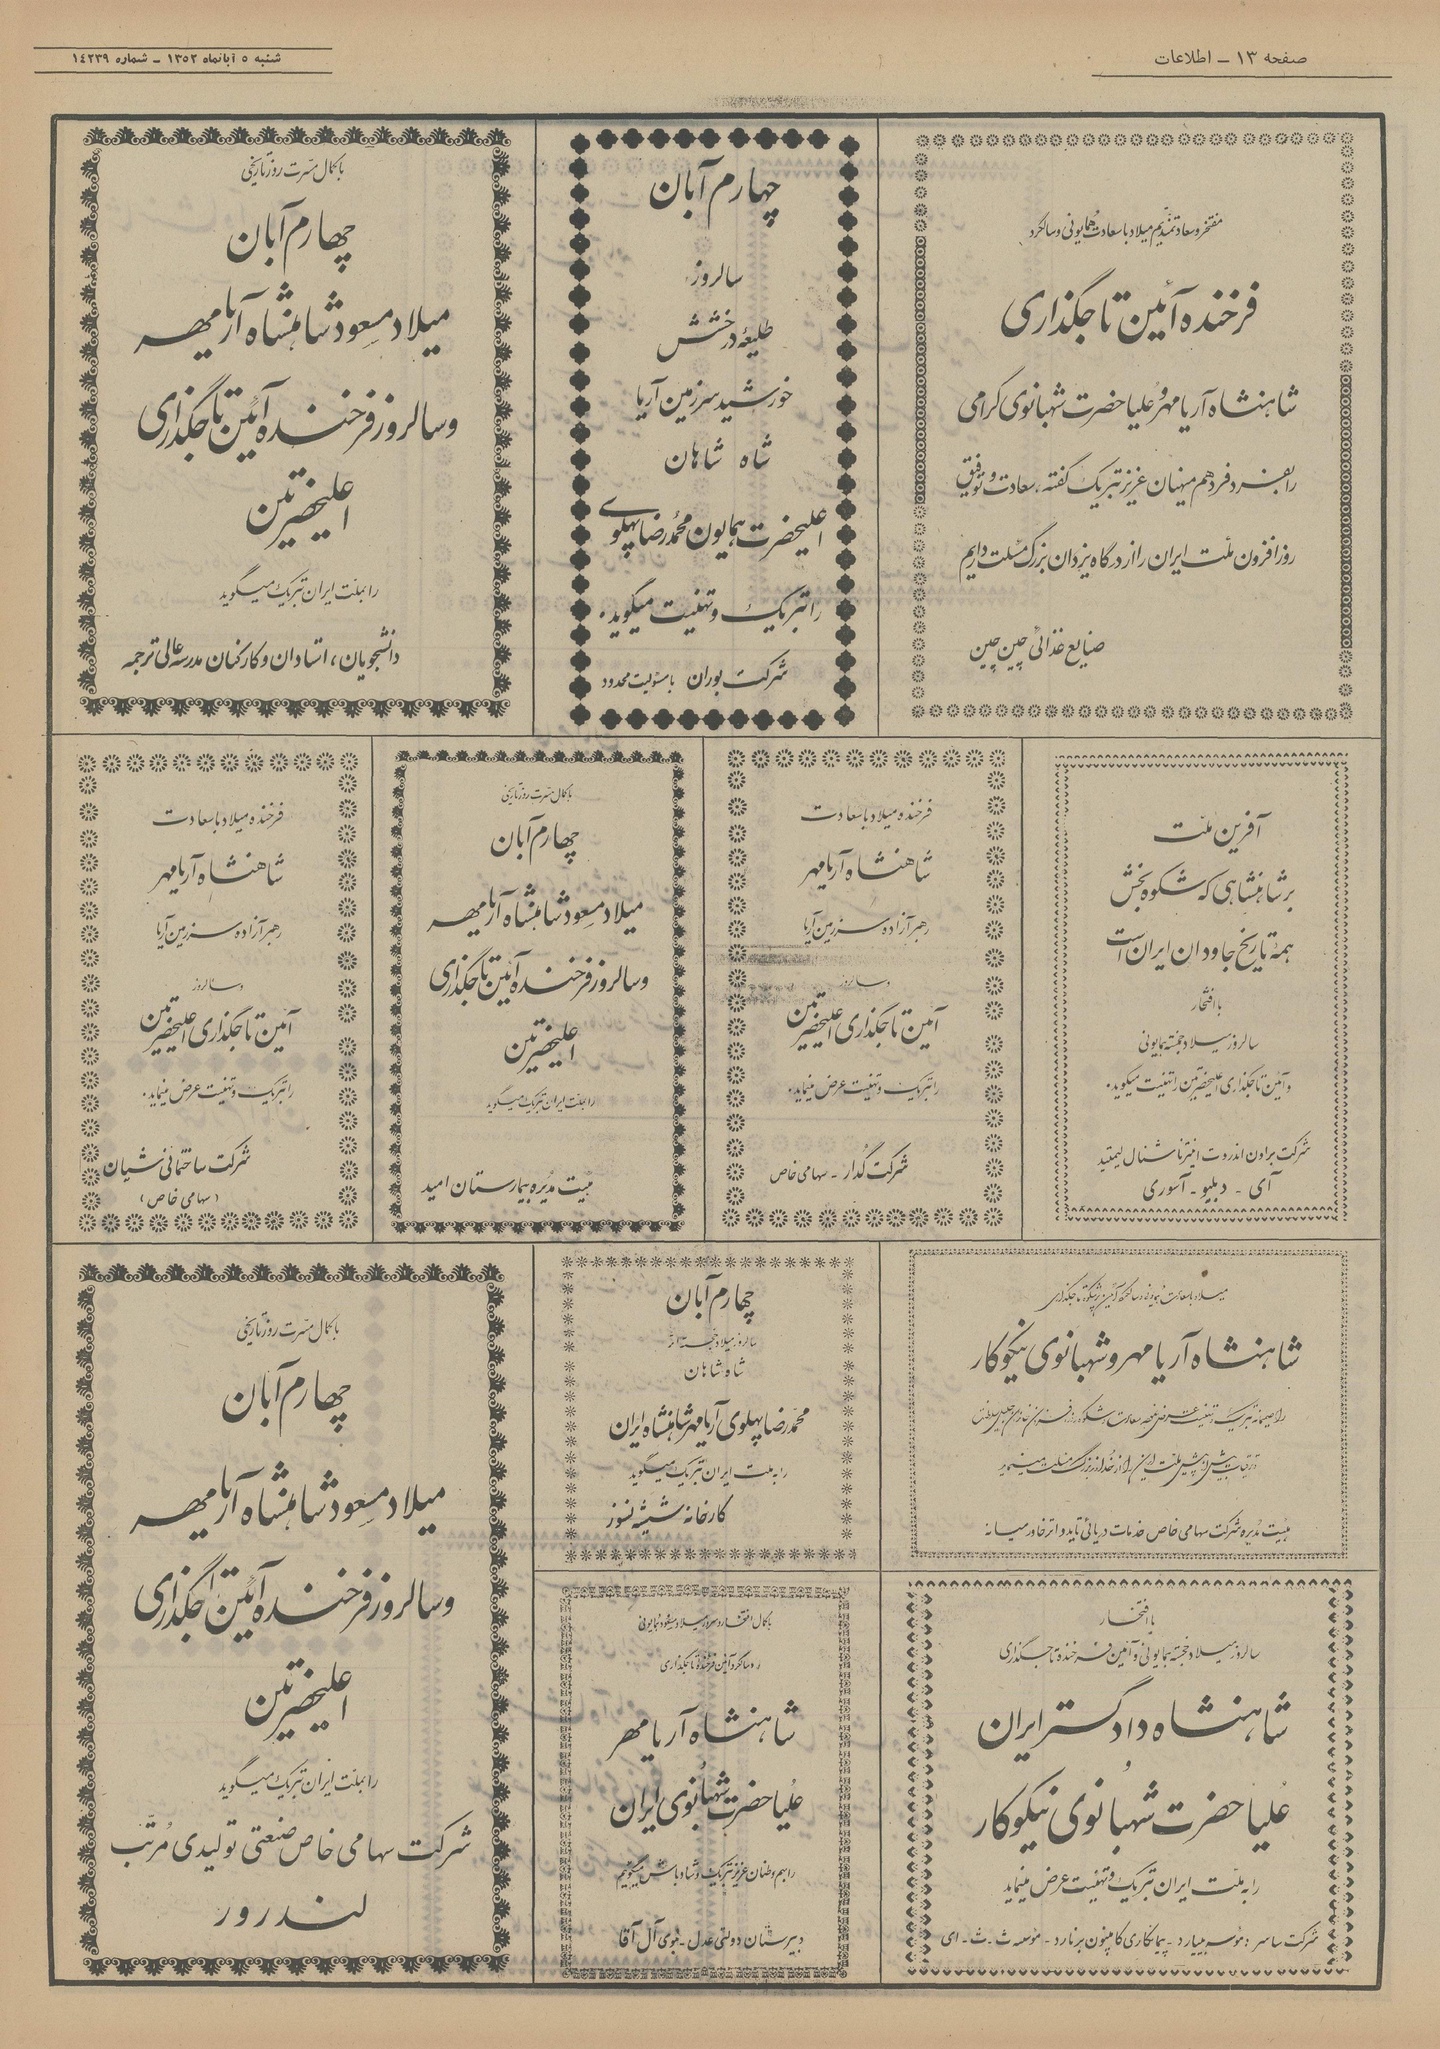 صفحه ۱۳ ـ اطلاعات
شنبه ۵ آبانماه ۱۳۵۲ ـ شماره ۱۴۲۳۹
مفتخر و سعادتمندیم میلاد با سعادت همایونی و سالگرد
فرخنده آئین تاجگذاری
شاهنشاه آریامهر و علیاحضرت شهبانوی گرامی
را بفرد فرد هم میهنان عزیز تبریک گفته، سعادت و توفیق
روزافزون ملت ایران را از درگاه یزدان بزرگ مسئلت داریم
صنایع غذائی چین چین
چهارم آبان
سالروز
طلیعه درخشش
خورشید سرزمین آریا
شاه شاهان
اعلیحضرت همایون محمدرضا پهلوی
را تبریک و تهنیت میگوید.
شرکت بوران با مسئولیت محدود
با کمال مسرت روز تاریخی
چهارم آبان
میلاد مسعود شاهنشاه آریامهر
و سالروز فرخنده آئین تاجگذاری
اعلیحضرتین
را بملت ایران تبریک میگوید
دانشجویان، استادان و کارکنان مدرسه عالی ترجمه
آفرین ملت
بر شاهنشاهی که شکوه بخش
همه تاریخ جاودان ایران است
با افتخار
سالروز میلاد خجسته همایونی
و آئین تاجگذاری اعلیحضرتین را تهنیت میگوید.
شرکت براون اند روت اینترناشنال لیمیتد
آی - دبلیو - آسوری
فرخنده میلاد با سعادت
شاهنشاه آریامهر
رهبر آزاده سرزمین آریا
و سالروز
آئین تاجگذاری اعلیحضرتین
را تبریک و تهنیت عرض مینماید.
شرکت گدار - سهامی خاص
با کمال مسرت روز تاریخی
چهارم آبان
میلاد مسعود شاهنشاه آریامهر
و سالروز فرخنده آئین تاجگذاری
اعلیحضرتین
را بملت ایران تبریک میگوید
هیئت مدیره بیمارستان امید
فرخنده میلاد با سعادت
شاهنشاه آریامهر
رهبر آزاده سرزمین آریا
و سالروز
آئین تاجگذاری اعلیحضرتین
را تبریک و تهنیت عرض مینماید.
شرکت ساختمانی نشیان
(سهامی خاص)
میلاد با سعادت همایونی و سالگرد آئین پرشکوه تاجگذاری
شاهنشاه آریامهر و شهبانوی نیکوکار
را صمیمانه تبریک و تهنیت عرض
ملت ایران را از خداوند بزرگ مسئلت مینماید
هیئت مدیره شرکت سهامی خاص خدمات دریائی تاید واتر خاورمیانه
چهارم آبان
سالروز میلاد خجسته
شاه شاهان
محمدرضا پهلوی آریامهر شاهنشاه ایران
را به ملت ایران تبریک میگوید
کارخانه شیشه نسوز
با کمال مسرت روز تاریخی
چهارم آبان
میلاد مسعود شاهنشاه آریامهر
و سالروز فرخنده آئین تاجگذاری
اعلیحضرتین
را بملت ایران تبریک میگوید
شرکت سهامی خاص صنعتی تولیدی مرتب
لندرور
با افتخار
سالروز میلاد خجسته همایونی و آئین فرخنده تاجگذاری
شاهنشاه دادگستر ایران
علیاحضرت شهبانوی نیکوکار
را به ملت ایران تبریک و تهنیت عرض مینماید
شرکت ساسر : موسسه بیبارد - پیمانکاری کامپنون برنارد - موسسه ث - ث - ای
با کمال افتخار سالروز میلاد مسعود همایونی
و سالگرد آئین فرخنده تاجگذاری
شاهنشاه آریامهر
علیاحضرت شهبانوی ایران
را بهم وطنان عزیز تبریک و شادباش میگوئیم
دبیرستان دولتی عدل - نبوی آل آقا